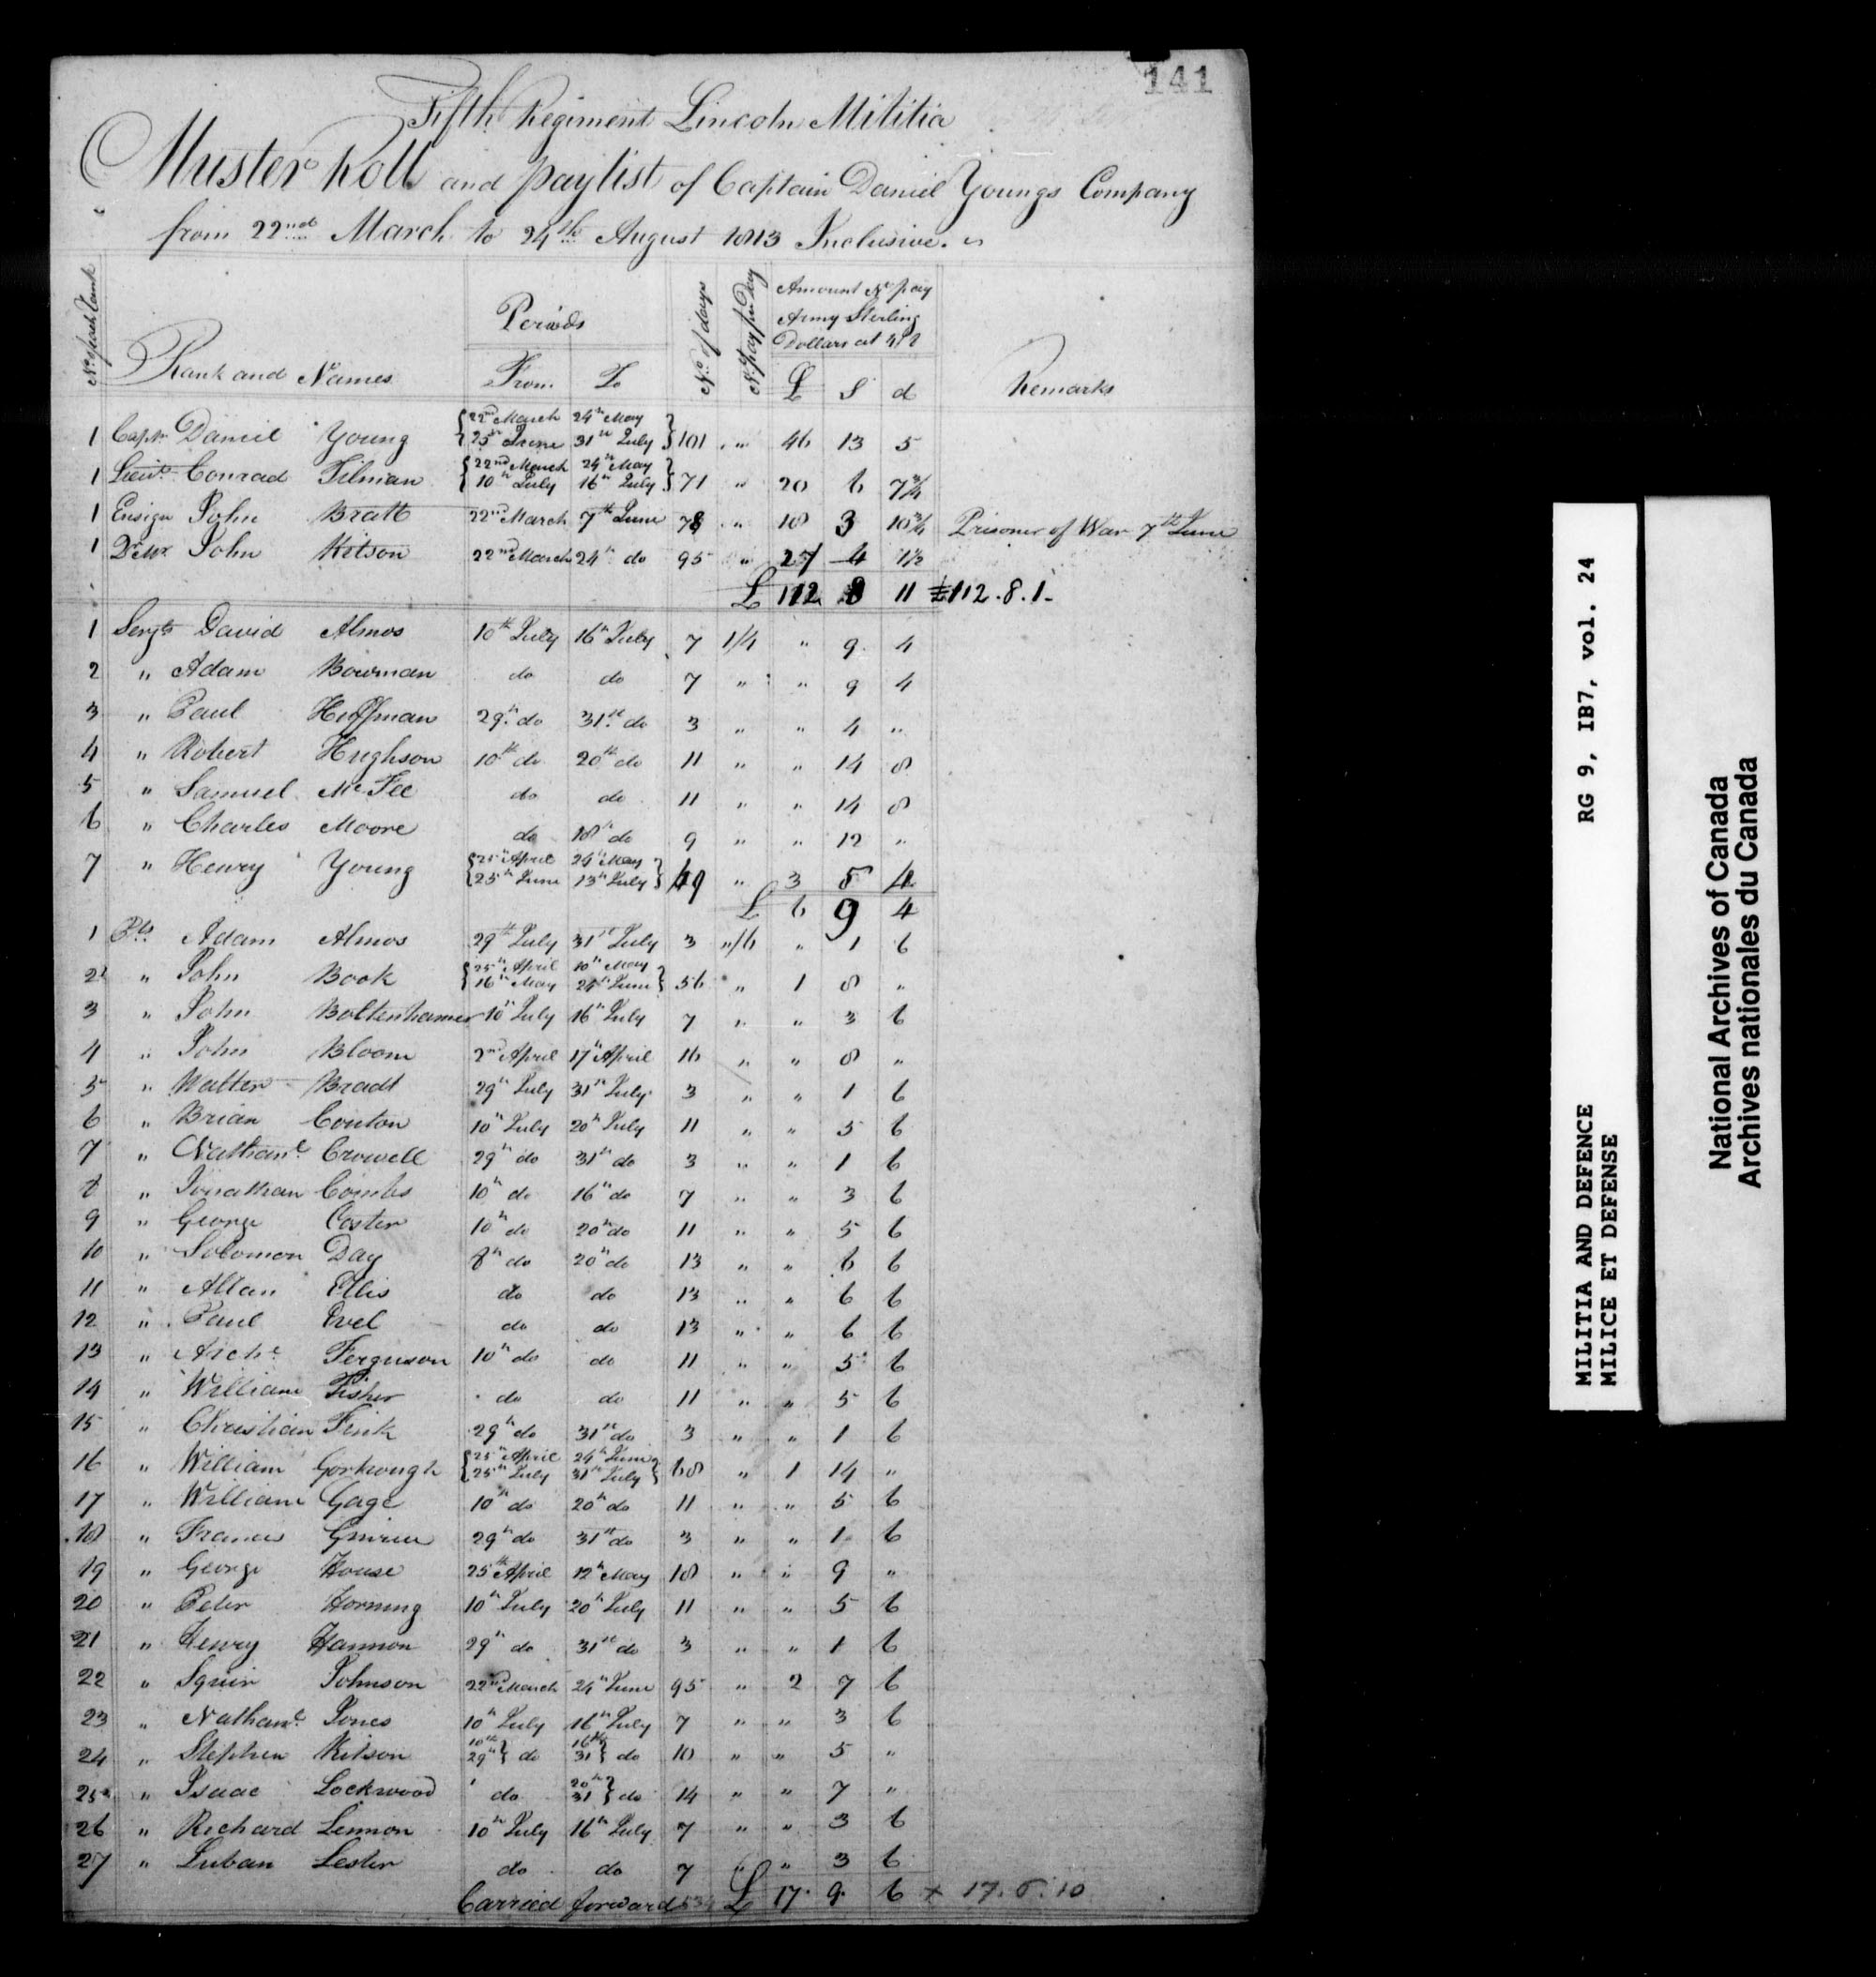 141
Fifth Regiment Lincoln Militia
Muster Roll and paylist of Captain Daniel Youngs Company
from 22nd March to 24th August 1813 Inclusive.
No of each Rank
Rank and Names
Periods
From
To
No of days
Amount
pay
Army Sterling
Dollars at
£ S d
Remarks
1 Captn Daniel Young {22nd March 24th May
25th June 31st July} 101 " 46 13 5
1 Lieut Conrad Filman {22nd March 24th May
10th July 16th July} 71 " 20 6 7 3/4
1 Ensign John Bratt 22nd March 7th June 78 " 18 3 10 3/4 Prisoner of War 7th June
1 John Kitson 22nd March 24th do 95 " 27 4 1 1/2
£ 112 8 11 £112.8.1-
1 Sergts David Almos 10th July 16th July 7 1/4 " 9 4
2 " Adam Bowman do do 7 " " 9 4
3 " Paul Huffman 29th do 31st do 3 " " 4 "
4 " Robert Hughson 10th do 20th do 11 " " 14 8
5 " Samuel McFee do do 11 " " 14 8
6 " Charles Moore do 18th do 9 " " 12 "
7 " Henry Young {25th April 24th May
25th June 13th July} 49 " 3 5 4
£ 6 9 4
1 Pts Adam Almos 29th July 31st July 3 "/6 " 1 6
2 " John Book {25th April 10th May
16th May 24th June} 56 " 1 8 "
3 " John Boltenhamer 10th July 16th July 7 " " 3 6
4 " John Bloom 2nd April 17th April 16 " " 8 "
5 " Walter Bradt 29th July 31st July 3 " " 1 6
6 " Brian Conton 10th July 20th July 11 " " 5 6
7 " Nathanl Crowell 29th do 31st do 3 " " 1 6
8 " Jonathan Combs 10th do 16th do 7 " " 3 6
9 " George Coster 10th do 20th do 11 " " 5 6
10 " Solomon Day 8th do 20th do 13 " " 6 6
11 " Allan Ellis do do 13 " " 6 6
12 " Paul Evel do do 13 " " 6 6
13 " Archd Ferguson 10th do do 11 " " 5 6
14 " William Fisher do do 11 " " 5 6
15 " Christian Fink 29th do 31st do 3 " " 1 6
16 " William {25th April 24th June
25th July 31st July} 68 " 1 14 "
17 " William Gage 10th do 20th do 11 " " 5 6
18 " Francis 29th do 31st do 3 " " 1 6
19 " George House 25th April 12th May 18 " " 9 "
20 " Peter Horning 10th July 20th July 11 " " 5 6
21 " Henry Hannon 29th do 31st do 3 " " 1 6
22 " Squir Johnson 22nd March 24th June 95 " 2 7 6
23 " Nathanl Jones 10th July 16th July 7 " " 3 6
24 " Stephen Kitson 10th
29th} do 16th
31} do 10 " " 5 "
25 " Isaac Lockwood do 20th
31} do 14 " " 7 "
26 " Richard Lennon 10th July 16th July 7 " " 3 6
27 " Luban Lester do do 7 " " 3 6
Carried forward £ 17 9 6 + 17.6.10
MILITIA AND DEFENCE RG 9, IB7, vol. 24
MILICE ET DEFENSE
National Archives of Canada
Archives nationales du Canada